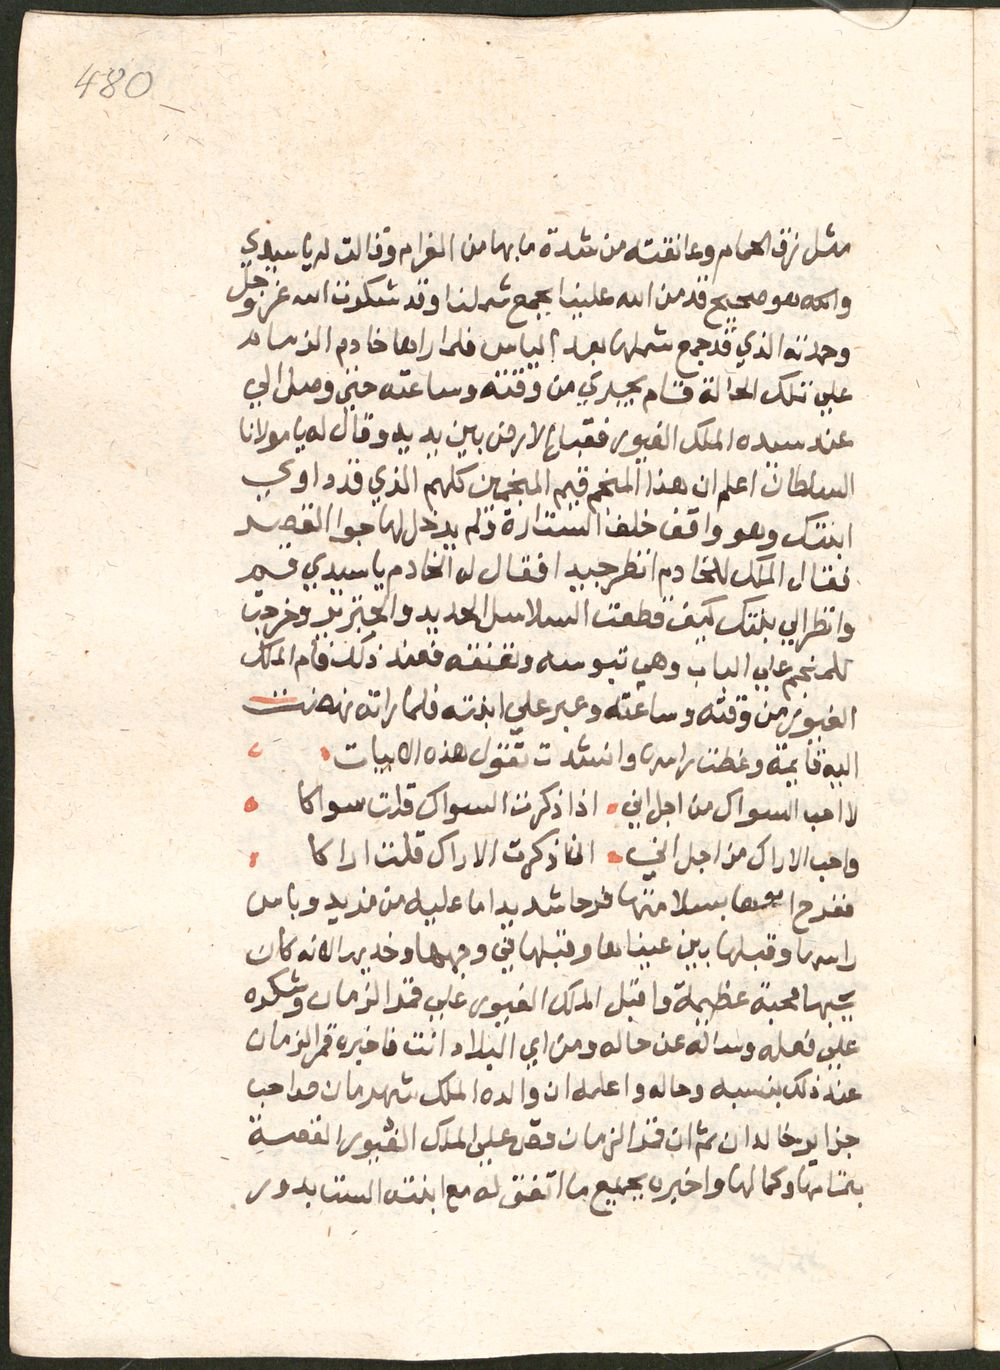 480
مثل زق الحمام وعانقته من شدة ما بها من الغرام وقالت له يا سيدي
والله هو صحيح قد من الله علينا بجمع شملنا وقد شكرت الله عز وجل
وحمدته الذي قد جمع شملها بعد الياس فلما راها خادم الزمام
علي تلك الحالة قام يجري من وقته وساعته حتى وصل الي
عند سيده الملك الغيور فقبل الارض بين يديه وقال له يا مولانا
السلطان اعلم ان هذا المنجم قيم المنجمين كلهم الذي قد داوي
ابنتك وهو واقف خلف الستارة ولم يدخل لها جوا القصر
فقال الملك للخادم انظر جيدا فقال له الخادم يا سيدي قم
وانظر الي بنتك كيف قطعت السلاسل الحديد والجنزير وخرجت
للمنجم علي الباب وهي تبوسه وتعنقه فعند ذلك قام الملك
الغيور من وقته وساعته وعبر علي ابنته فلما راته نهضت
اليه قايمة وغطت راسها وانشدت تقول هذه الابيات
لا احب السواك من اجل اني اذا ذكرت السواك قلت سواكا
واحب الاراك من اجل اني انا ذكرت الاراك قلت اراكا
ففرح ابوها بسلامتها فرحا شديدا ما عليه من مزيد وباس
راسها وقبلها بين عيناها وقبلها في وجهها وخديها لانه كان
يحبها محبة عظيمة واقبل الملك الغيور علي قمر الزمان وشكره
علي فعله وساله عن حاله ومن اي البلاد انت فاخبره قمر الزمان
عند ذلك بنسبه وحاله واعلمه ان والده الملك شهرمان صاحب
جزاير خالدان ثم ان قمر الزمان قص علي الملك الغيور القصة
بتمامها وكمالها واخبره بجميع ما اتفق له مع ابنته الست بدور